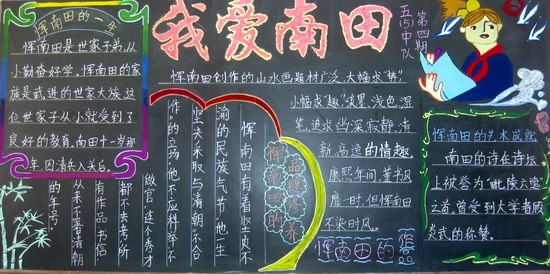 我爱南田
第四期
五(5)中队
恽南田的一生
恽南田是世家子弟,从
小勤奋好学。恽南田的家
族是武进的世家大族。过
位世家子从小就受到了
良好的教育,南田十一岁那
年,因清兵入关后,
恽南田创作的山水画题材广泛,大幅求“势”
小幅求“趣”,味墨、浅色、湿
笔,追求幽深寂静、清
新、高逸的情趣。
康熙年间董书风
靡一时,但恽南田
不染时风。
恽南田的
品德修养
恽南田的
恽南田有着坚贞不
渝的民族气节,他一生
坚决采取与清朝“不合
作”的立场,他不应科举,不
做官,这个秀才
都不去考,所
有作品书信
从来不署清朝
的年号。
恽南田的艺术成就
南田的诗在诗坛
上被誉为“毗陵六逸”
之首,曾受到大学者顾
炎武的称赞。